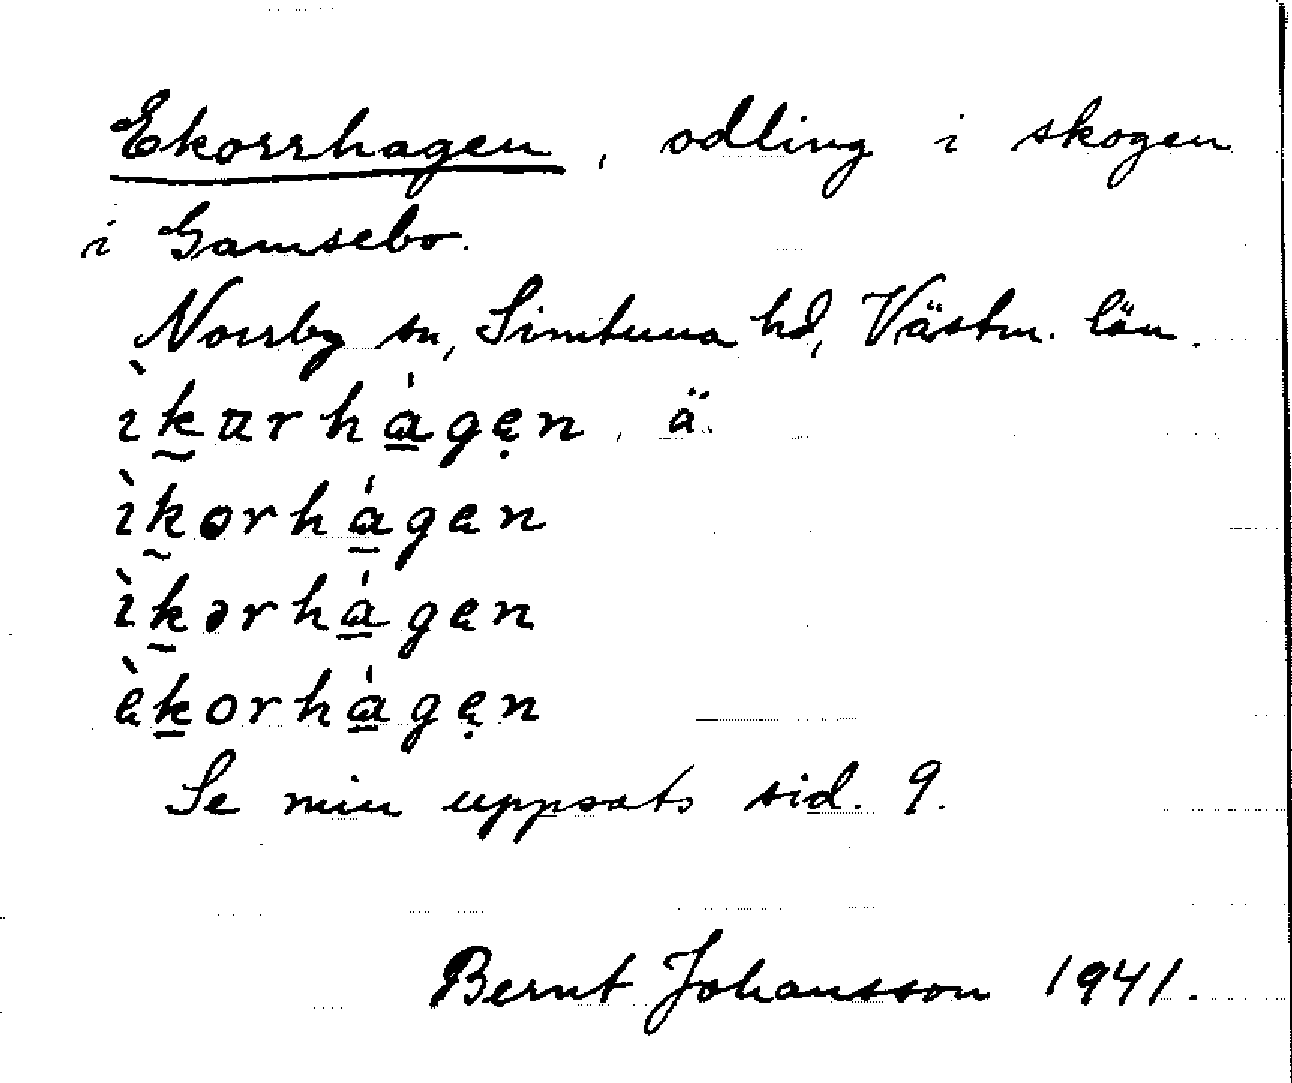 Ekorrhagen, odling i skogen
i Gamsebo.
Norrby sn, Simtuna hd, Västm. län.
ìk̰ɷrha̱̍gẹn, ä.
ìk̰orha̱̍gen
ìk̰ərha̱̍gen
èḵorha̱̍gẹn
Se min uppsats sid. 9.
Bernt Johansson 1941.